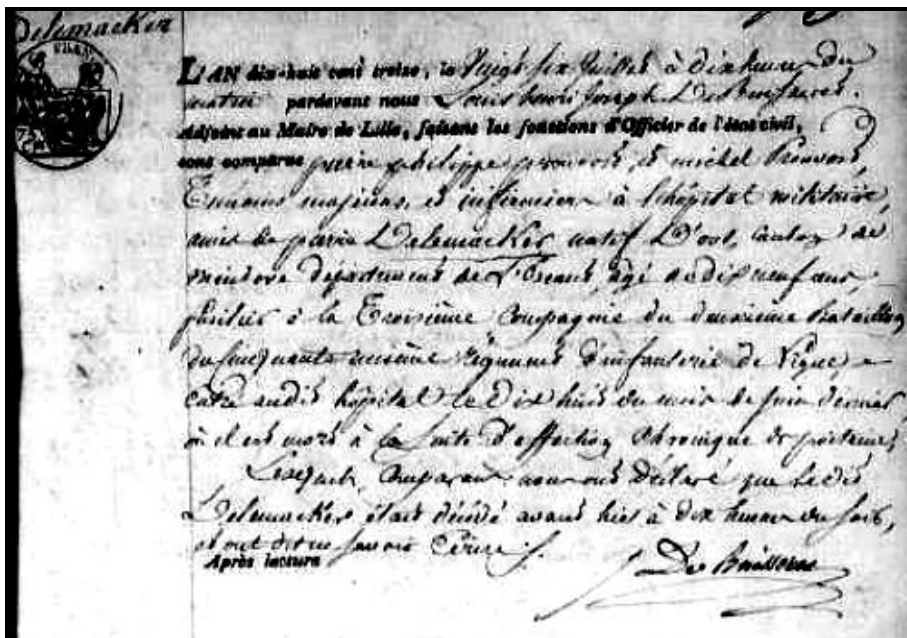 Delemacker
L'AN dix-huit cent treize, le Vingt six Juillet à dix heures du
matin pardevant nous Louis henri Joseph
Adjoint au Maire de Lille, faisant les fonctions d'Officier de l'état civil,
sont comparus pierre philippe prouvost, et michel Prouvost
Témoins majeurs, et infirmiers à l'hôpital militaire,
amis de pierre Delemacker natif D'ost, canton de
département de L'Escaut, agé de dix neuf ans,
fusilier à la Troisième Compagnie du deuxieme Bataillon
du Cinquante unième Régiment d'infanterie de ligne,
entré audit hôpital le Dix huit du mois de juin dernier
où il est mort à la Suite d'affection Chronique de poitrine,
Lesquels Comparans nous ont Déclaré que le dit
Delemacker était décédé avant hier à dix heures du soir,
et ont dit ne savoir Ecrire
Après lecture